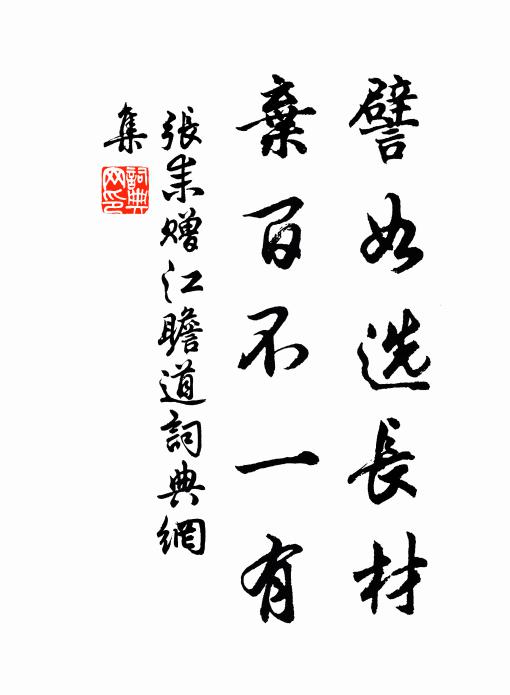 譬如选長材
棄百不一有
張耒赠江瞻道詞典網
集
詞典网印